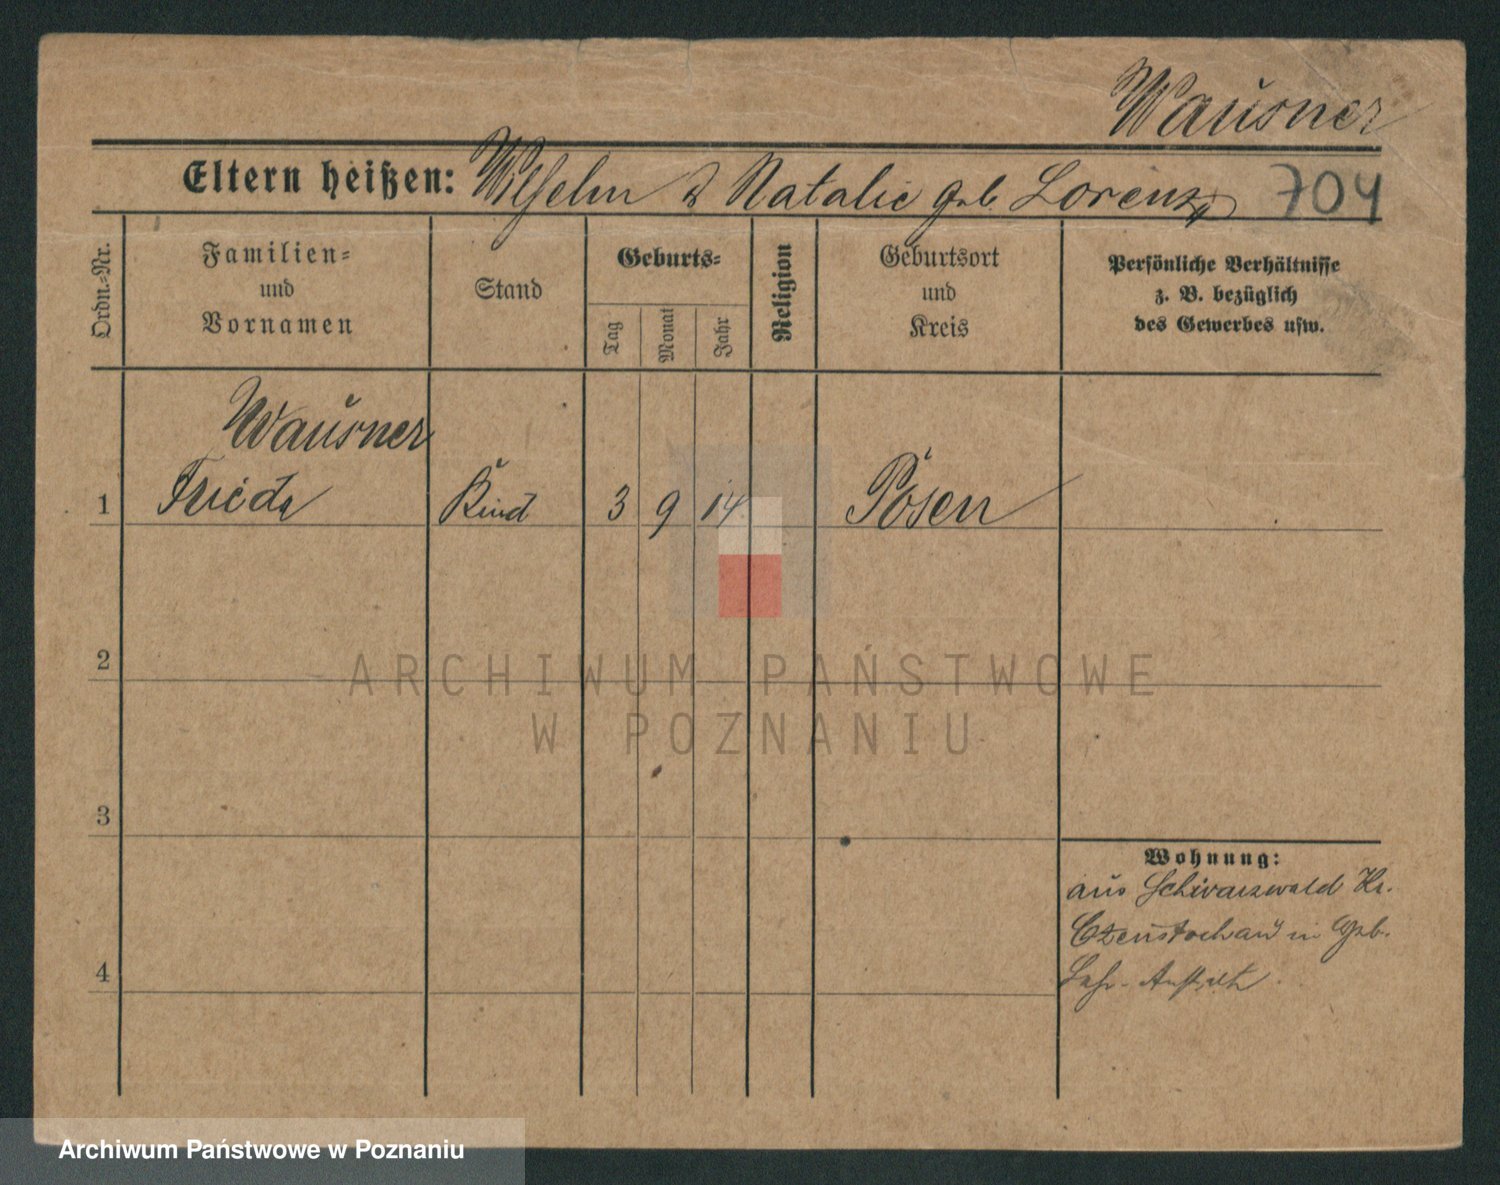 Wausner
Eltern heißen: Wilhelm & Natalie geb. Lorenz 704
Ordn.-Nr.
Familien-
und
Vornamen
Stand
Geburts-
Tag
Monat
Jahr
Religion
Geburtsort
und
Kreis
Persönliche Verhältnisse
z. B. bezüglich
des Gewerbes usw.
Wausner
1 Frieda Kind 3 9 14 Posen
2
ARCHIWUM PAŃSTWOWE
W POZNANIU
3
Wohnung:
aus Schwarzwald Kr.
Czenstochau in Geb.
4
Anstalt
Archiwum Państwowe w Poznaniu